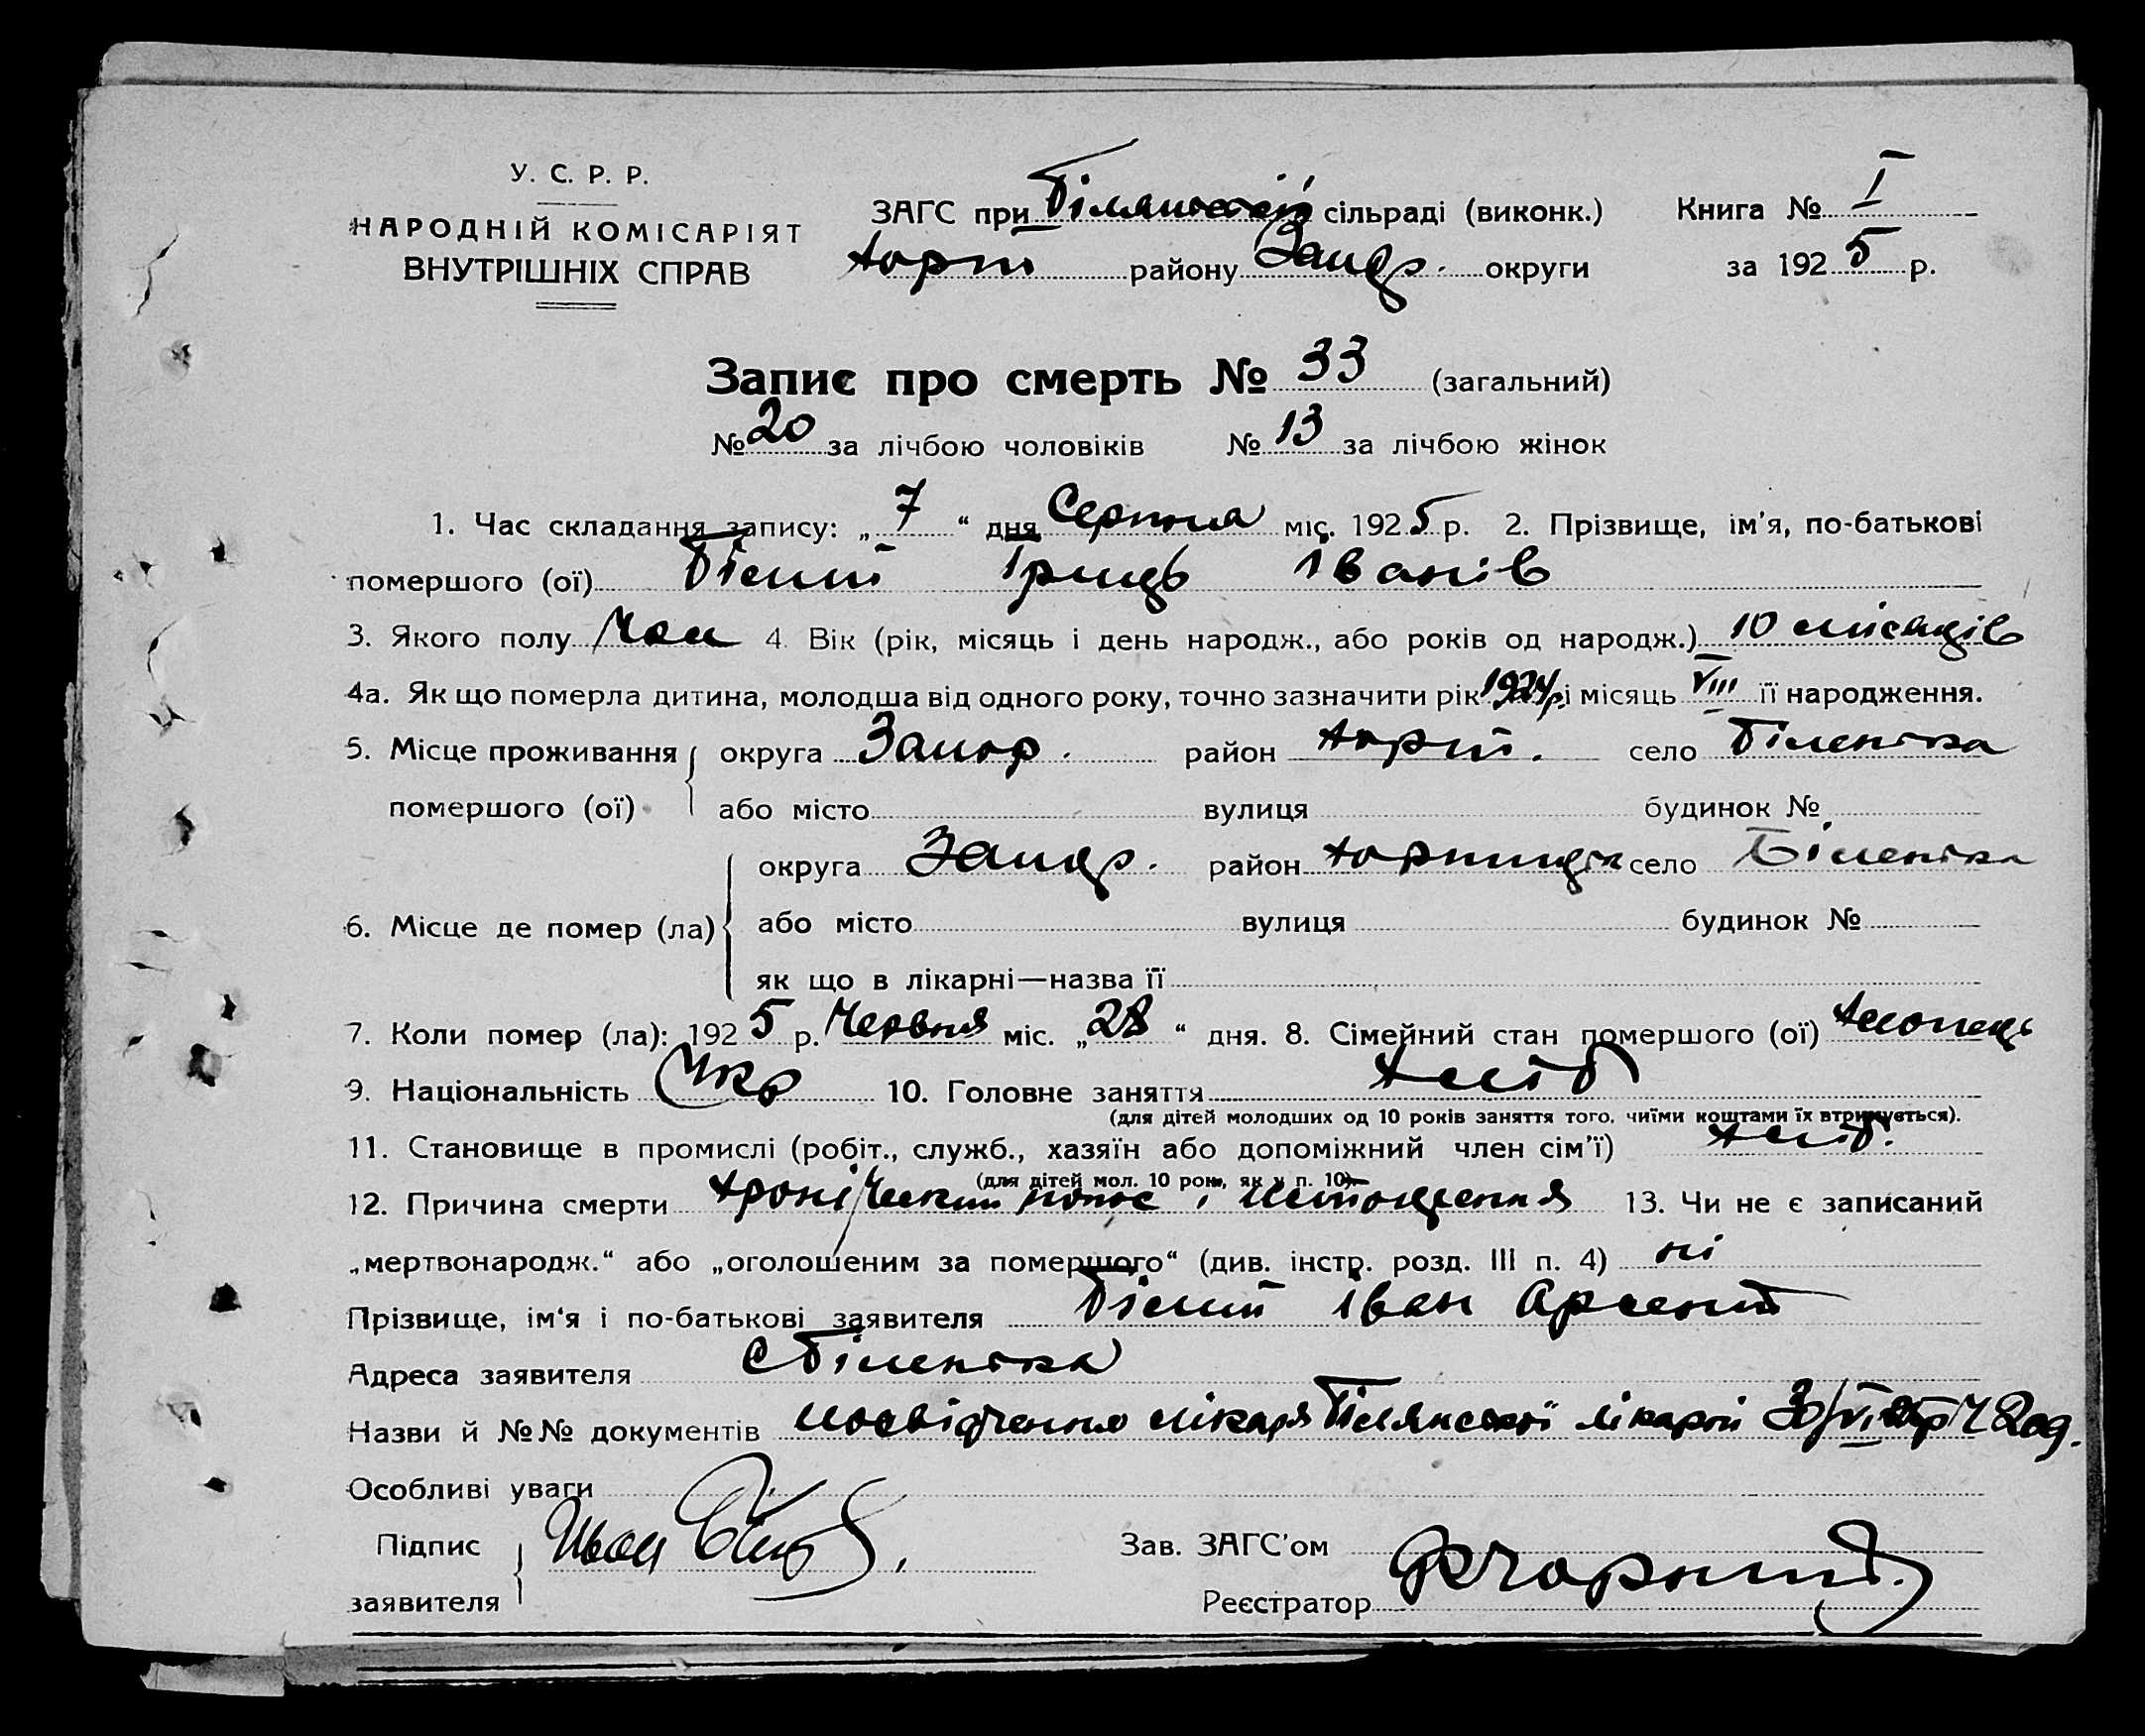 У. С. Р. Р.
НАРОДНІЙ КОМІСАРІЯТ
ВНУТРІШНІХ СПРАВ
ЗАГС при Білянській сільраді (виконк.)
Хорт району Запор. округи
Книга № I
за 1925 р.
Запис про смерть № 33 (загальний)
№ 20 за лічбою чоловіків № 13 за лічбою жінок
1. Час складання запису: „7“ дня Серпня міс. 1925 р. 2. Прізвище, ім'я, по-батькові
помершого (ої) Білий Гриць Іванів
3. Якого полу Чол 4. Вік (рік, місяць і день народж., або років од народж.) 10 місяців
4а. Як що померла дитина, молодша від одного року, точно зазначити рік 1924 р. і місяць VIII її народження.
5. Місце проживання помершого (ої) округа Запор. район Хорт. село Біленька
або місто вулиця будинок №
6. Місце де помер (ла) округа Запор. район Хортицьк село Біленька
або місто вулиця будинок №
як що в лікарні—назва її
7. Коли помер (ла): 1925 р. Червня міс. „28“ дня. 8. Сімейний стан помершого (ої) Хлопець
9. Національність Укр 10. Головне заняття Хліб
(для дітей молодших од 10 років заняття того, чиїми коштами їх втримується).
11. Становище в промислі (робіт., служб., хазяїн або допоміжний член сім'ї) Хліб.
(для дітей мол. 10 рок., як у п. 10)
12. Причина смерти хронический понос і истощення 13. Чи не є записаний
„мертвонародж.“ або „оголошеним за помершого“ (див. інстр. розд. III п. 4) ні
Прізвище, ім'я і по-батькові заявителя Білий Іван Арсент
Адреса заявителя с Біленька
Назви й №№ документів посвідчення лікаря Білянської лікарні 30/VI
Особливі уваги
Підпис заявителя Иван
Зав. ЗАГС'ом
Реєстратор